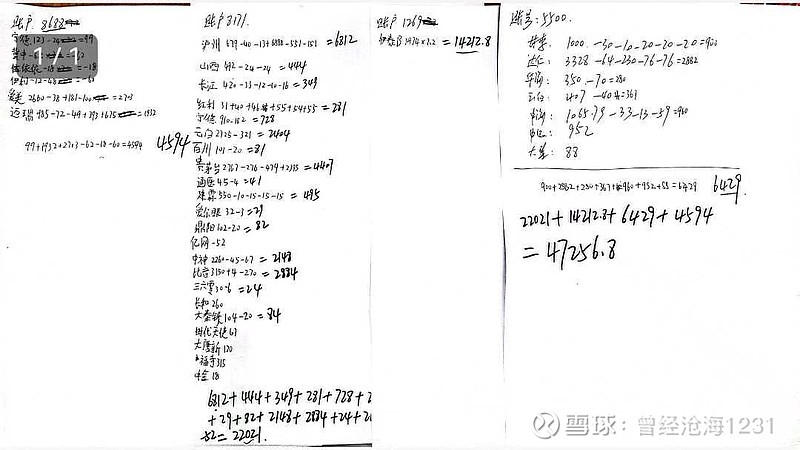 账户 8688
1/1
爱美 2660-38+181-100=2703
迈瑞 985-72-49+393+675=1932
99+1932+2713-62-18-60=4594 4594
账户 3171.
泸州 679-40-13+6888-551-151=6812
山西 492-24-24=444
长江 420-33-12-10-16=349
红利 31+40+46+55+54+55=281
宁德 910-182=728
云白 2725-321=2404
百川 101-20=81
贵茅台 2767-276-479+2395=4407
通医 45-4=41
片霖 550-10-15-15-15=495
爱尔眼 32-3=29
鼎阳 102-20=82
亿网-52
中神 2260-45-67=2148
比音 3150+4-270=2884
三六零 30-6=24
长和 260
大秦铁 104-20=84
时代天使 61
大唐新 120
福寿 315
中金 18
6812+444+349+281+728+2
+29+82+2148+2884+24+2
-52=22021.
账户 1269
=14212.8
账号:5500.
1000-30-10-20-20-20=900
3328-64-230-76-76=2882
350-70=280
407-40=367
1065.79-33-13-59=960
952
大参 88
900+2882+280+367+960+952+88=6429 6429
22021+14212.8+6429+4594
=47256.8
雪球:曾经沧海1231